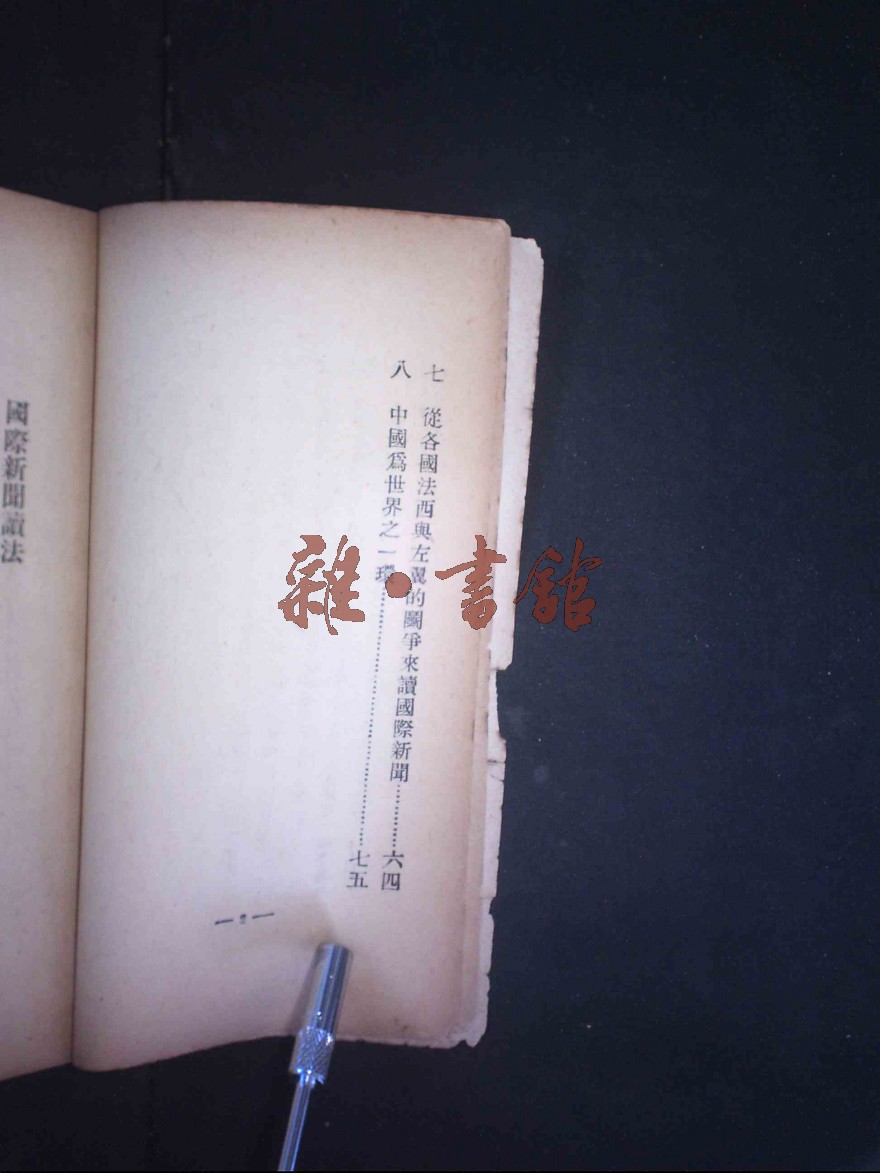 七　從各國法西與左翼的鬭爭來讀國際新聞…………六四
八　中國爲世界之一環…………………………七五
— 2 —
國際新聞讀法
雜·書館